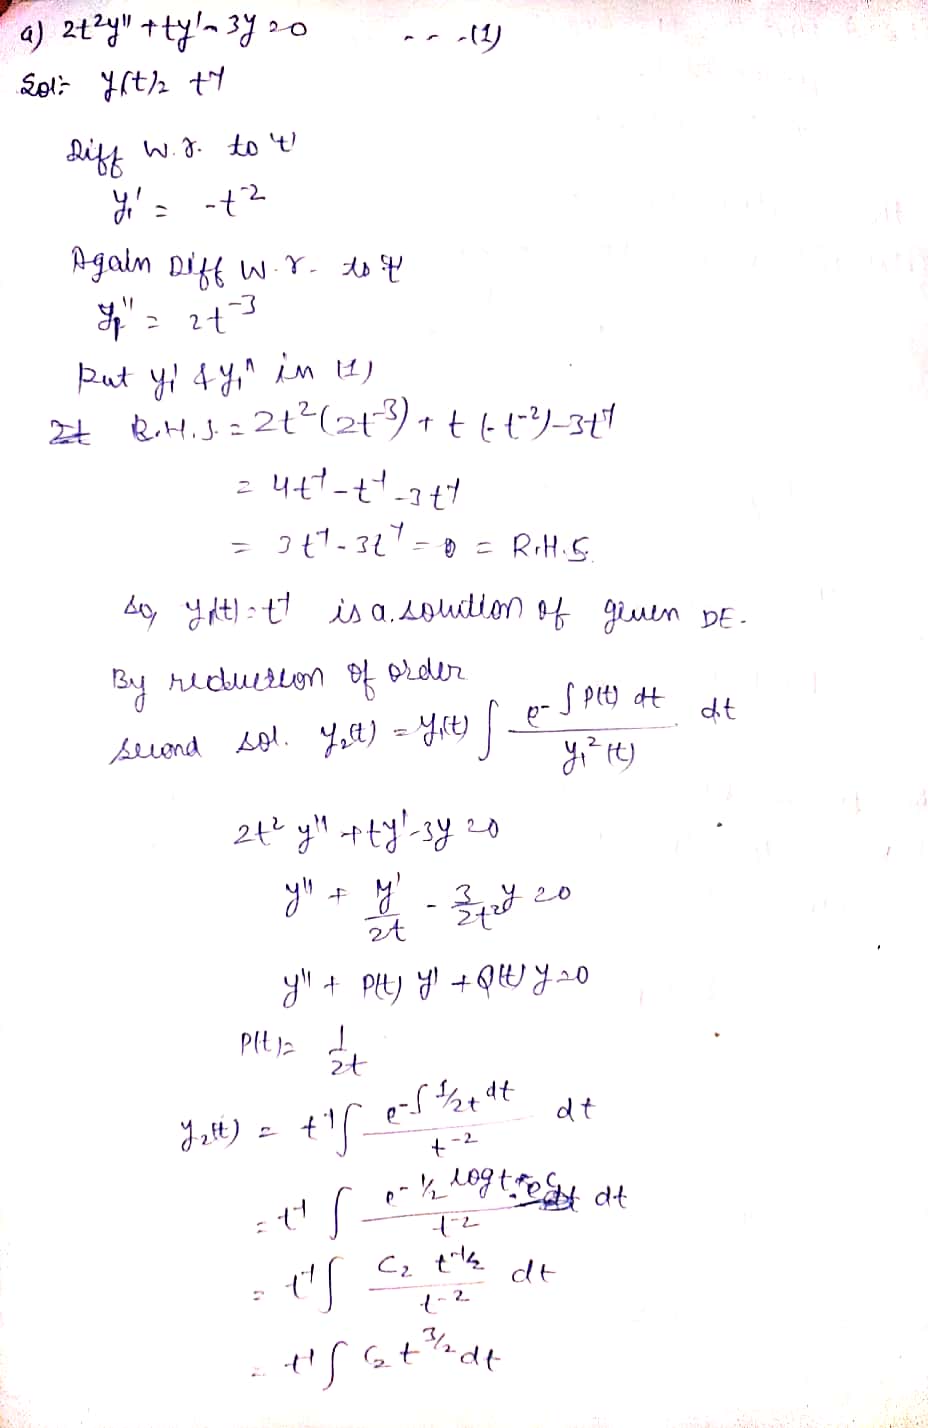 a) 2t²y" + ty' - 3y = 0 ---(1)
Sol:- y(t) = t⁻¹
Diff w.r. to 't'
y₁' = -t⁻²
Again Diff w.r. to 't'
y₁" = 2t⁻³
Put y₁' & y₁" in (1)
R.H.S. = 2t²(2t⁻³) + t(-t⁻²) - 3t⁻¹
= 4t⁻¹ - t⁻¹ - 3t⁻¹
= 3t⁻¹ - 3t⁻¹ = 0 = R.H.S.
so, y₁(t) = t⁻¹ is a solution of given DE.
By reduction of order
second sol. y₂(t) = y₁(t) ∫ e^(-∫P(t) dt) / y₁²(t) dt
2t² y" + ty' - 3y = 0
y" + y'/2t - 3/2t² y = 0
y" + P(t) y' + Q(t) y = 0
P(t) = 1/2t
y₂(t) = t⁻¹ ∫ e^(-∫1/2t dt) / t⁻² dt
= t⁻¹ ∫ e^(-½ log t + C₂) / t⁻² dt
= t⁻¹ ∫ C₂ t^(-1/2) / t⁻² dt
= t⁻¹ ∫ C₂ t^(3/2) dt